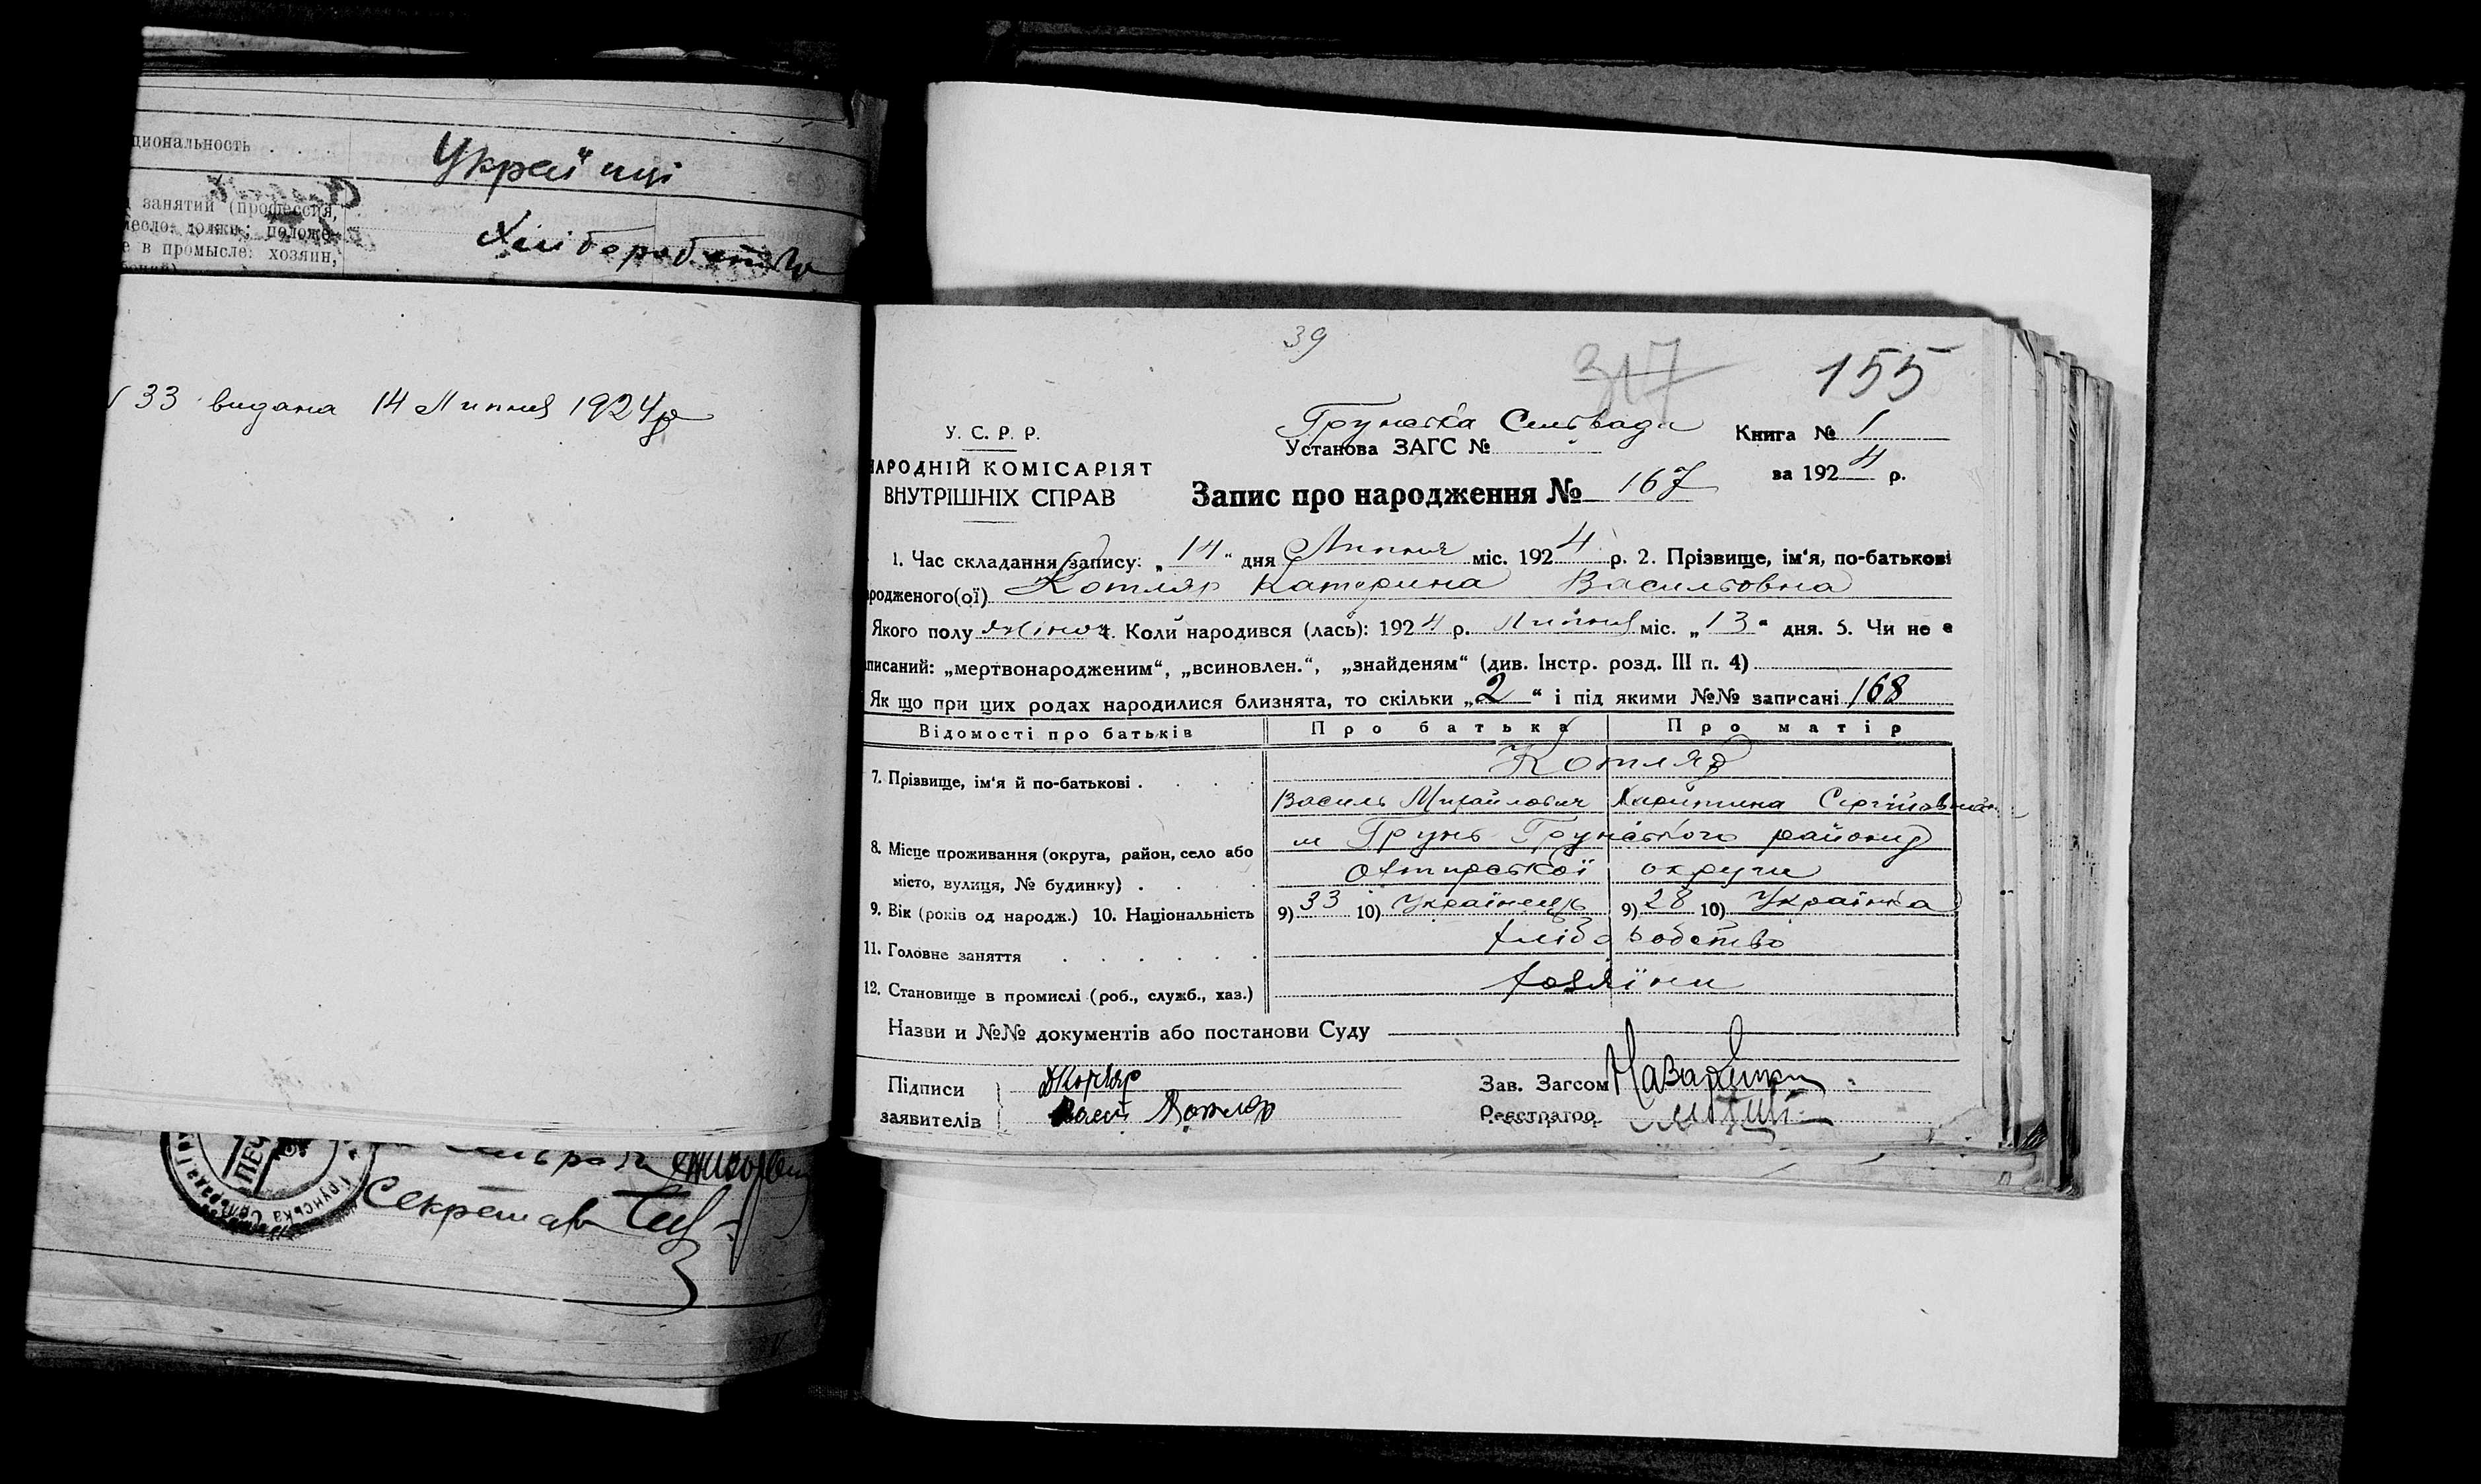 циональность . . .
Україці
занятий (профессия,
есло: должн.; положе-
е в промысле: хозяин,
Хліборобство
33 видана 14 Липня 1924 р
Секретарь
Грунська Сільрада
39
317
155
Грунська Сельрада
У. С. Р. Р.
Установа ЗАГС №
Книга № 1
НАРОДНІЙ КОМІСАРІЯТ
за 1924 р.
ВНУТРІШНІХ СПРАВ
Запис про народження № 167
1. Час складання запису: „14" дня Липня міс. 1924 р. 2. Прізвище, ім'я, по-батькові
родженого(ої) Котляр Катерина Васильовна
Якого полу жіноч 4. Коли народився (лась): 1924 р. Липня міс. „13" дня. 5. Чи не є
писаний: „мертвонародженим", „всиновлен.", „знайденям" (див. Інстр. розд. III п. 4)
Як що при цих родах народилися близнята, то скільки „2" і під якими №№ записані 168
Відомості про батьків Про батька Про матір
Котляр
7. Прізвище, ім'я й по-батькові .
Василь Михайлович Харитина Сергійовна
м Грунь Грунського району
8. Місце проживання (округа, район, село або
місто, вулиця, № будинку) .
Охтирської округи
9. Вік (років од народж.) 10. Національність 9) 33 10) Українець 9) 28 10) Українка
хліборобство
11. Головне заняття
хозяїни
12. Становище в промислі (роб., служб., хаз.)
Назви и №№ документів або постанови Суду
Підписи
Зав. Загсом
заявителів Котляр
Реєстратор